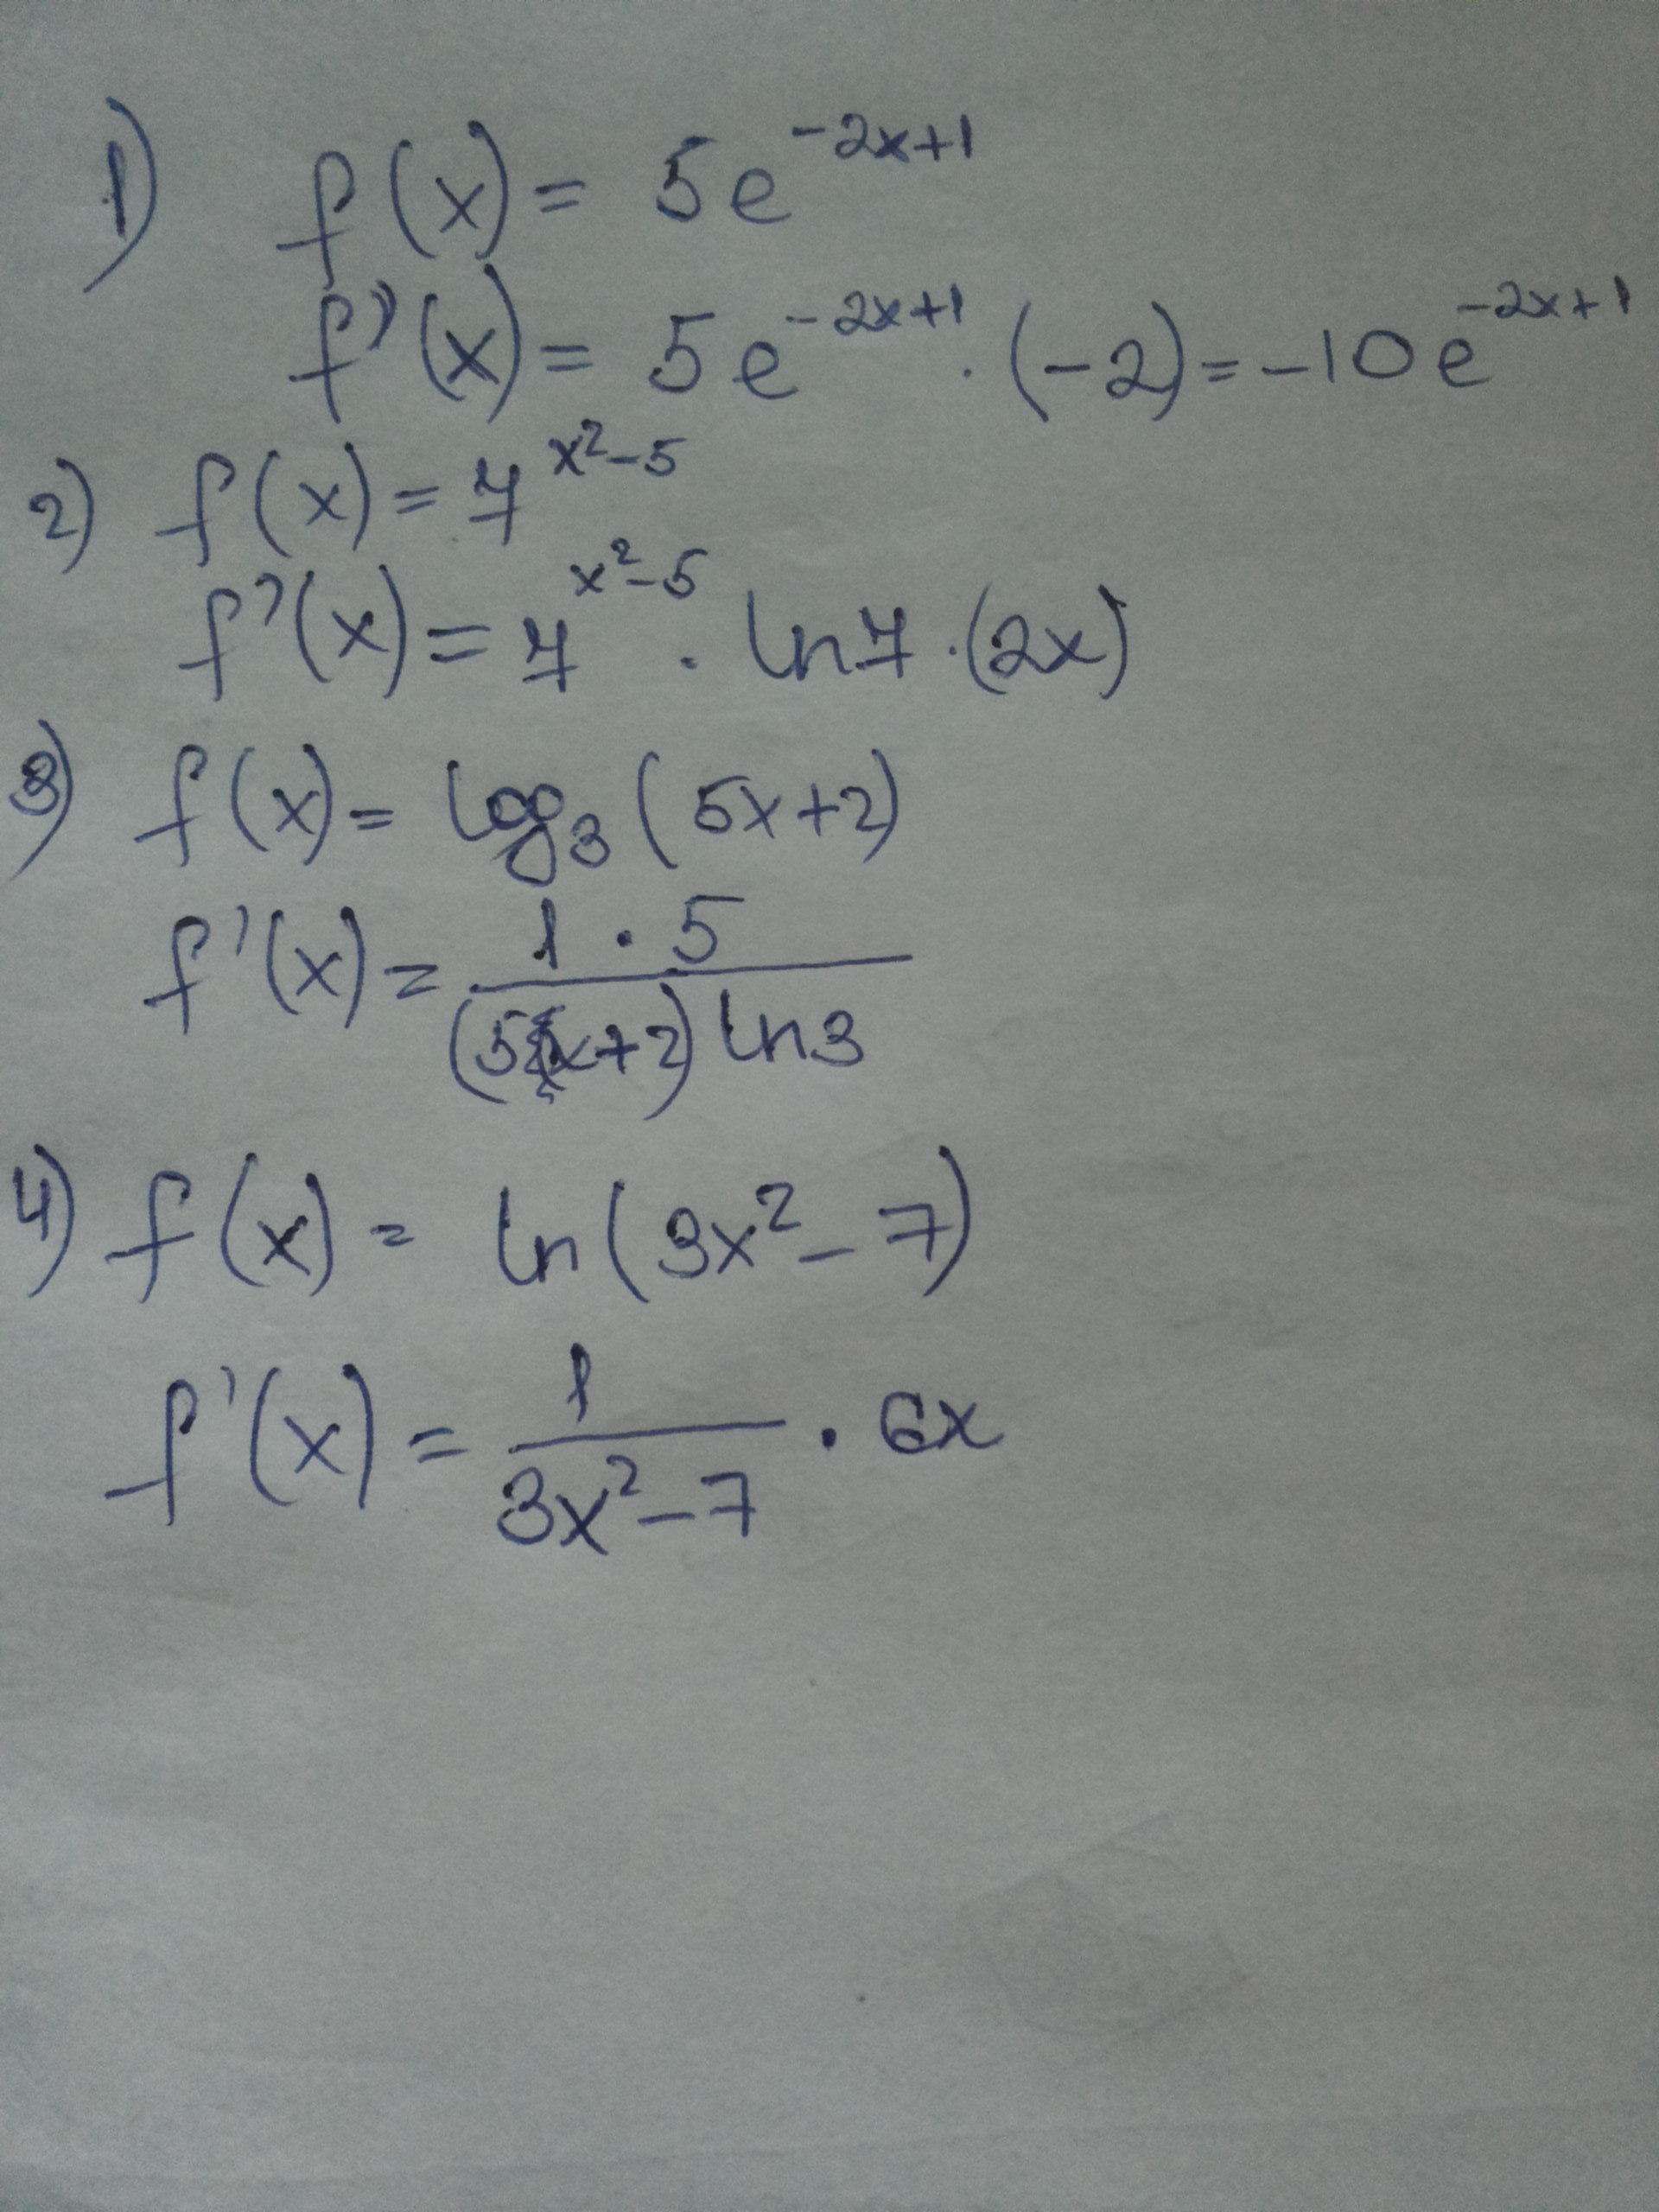 1) f(x) = 5e^{-2x+1}
f'(x) = 5e^{-2x+1} · (-2) = -10e^{-2x+1}
2) f(x) = 7^{x²-5}
f'(x) = 7^{x²-5} · ln7 · (2x)
3) f(x) = log₃(5x+2)
f'(x) = \frac{1 · 5}{(5x+2) ln3}
4) f(x) = ln(3x²-7)
f'(x) = \frac{1}{3x²-7} · 6x